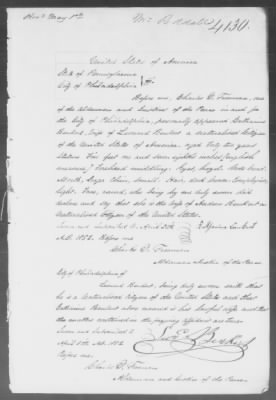 Rec'd May 1st
Mr Biddle
4130.
United States of America
State of Pennsylvania
City of Philadelphia
Before me, Charles D. Freeman, one
of the Aldermen and Justices of the Peace in and for
the City of Philadelphia, personally appeared Catharine
wife of Leonard a naturalized Citizen
of the United States of America aged fifty two years
Stature five feet and seven eighths inches, English
measure, forehead middling, Eyes, hazel, Nose
Mouth, large Chin, small, Hair, dark brown Complexion,
light. Face, round, who being by me duly sworn doth
declare and say that she is the wife of
naturalized Citizen of the United States.
Sworn and subscribed to April 30th
A.D. 1852. Before me
Charles D. Freeman
Alderman Justice of the Peace
City of Philadelphia
Leonard being duly sworn saith that
he is a naturalized Citizen of the United States and that
Catharine above named is his lawful wife and that
the matter contained in the foregoing affidavit are true
Sworn and Subscribed to
April 30th AD. 1852
Before me,
Charles D. Freeman
Alderman and Justice of the Peace